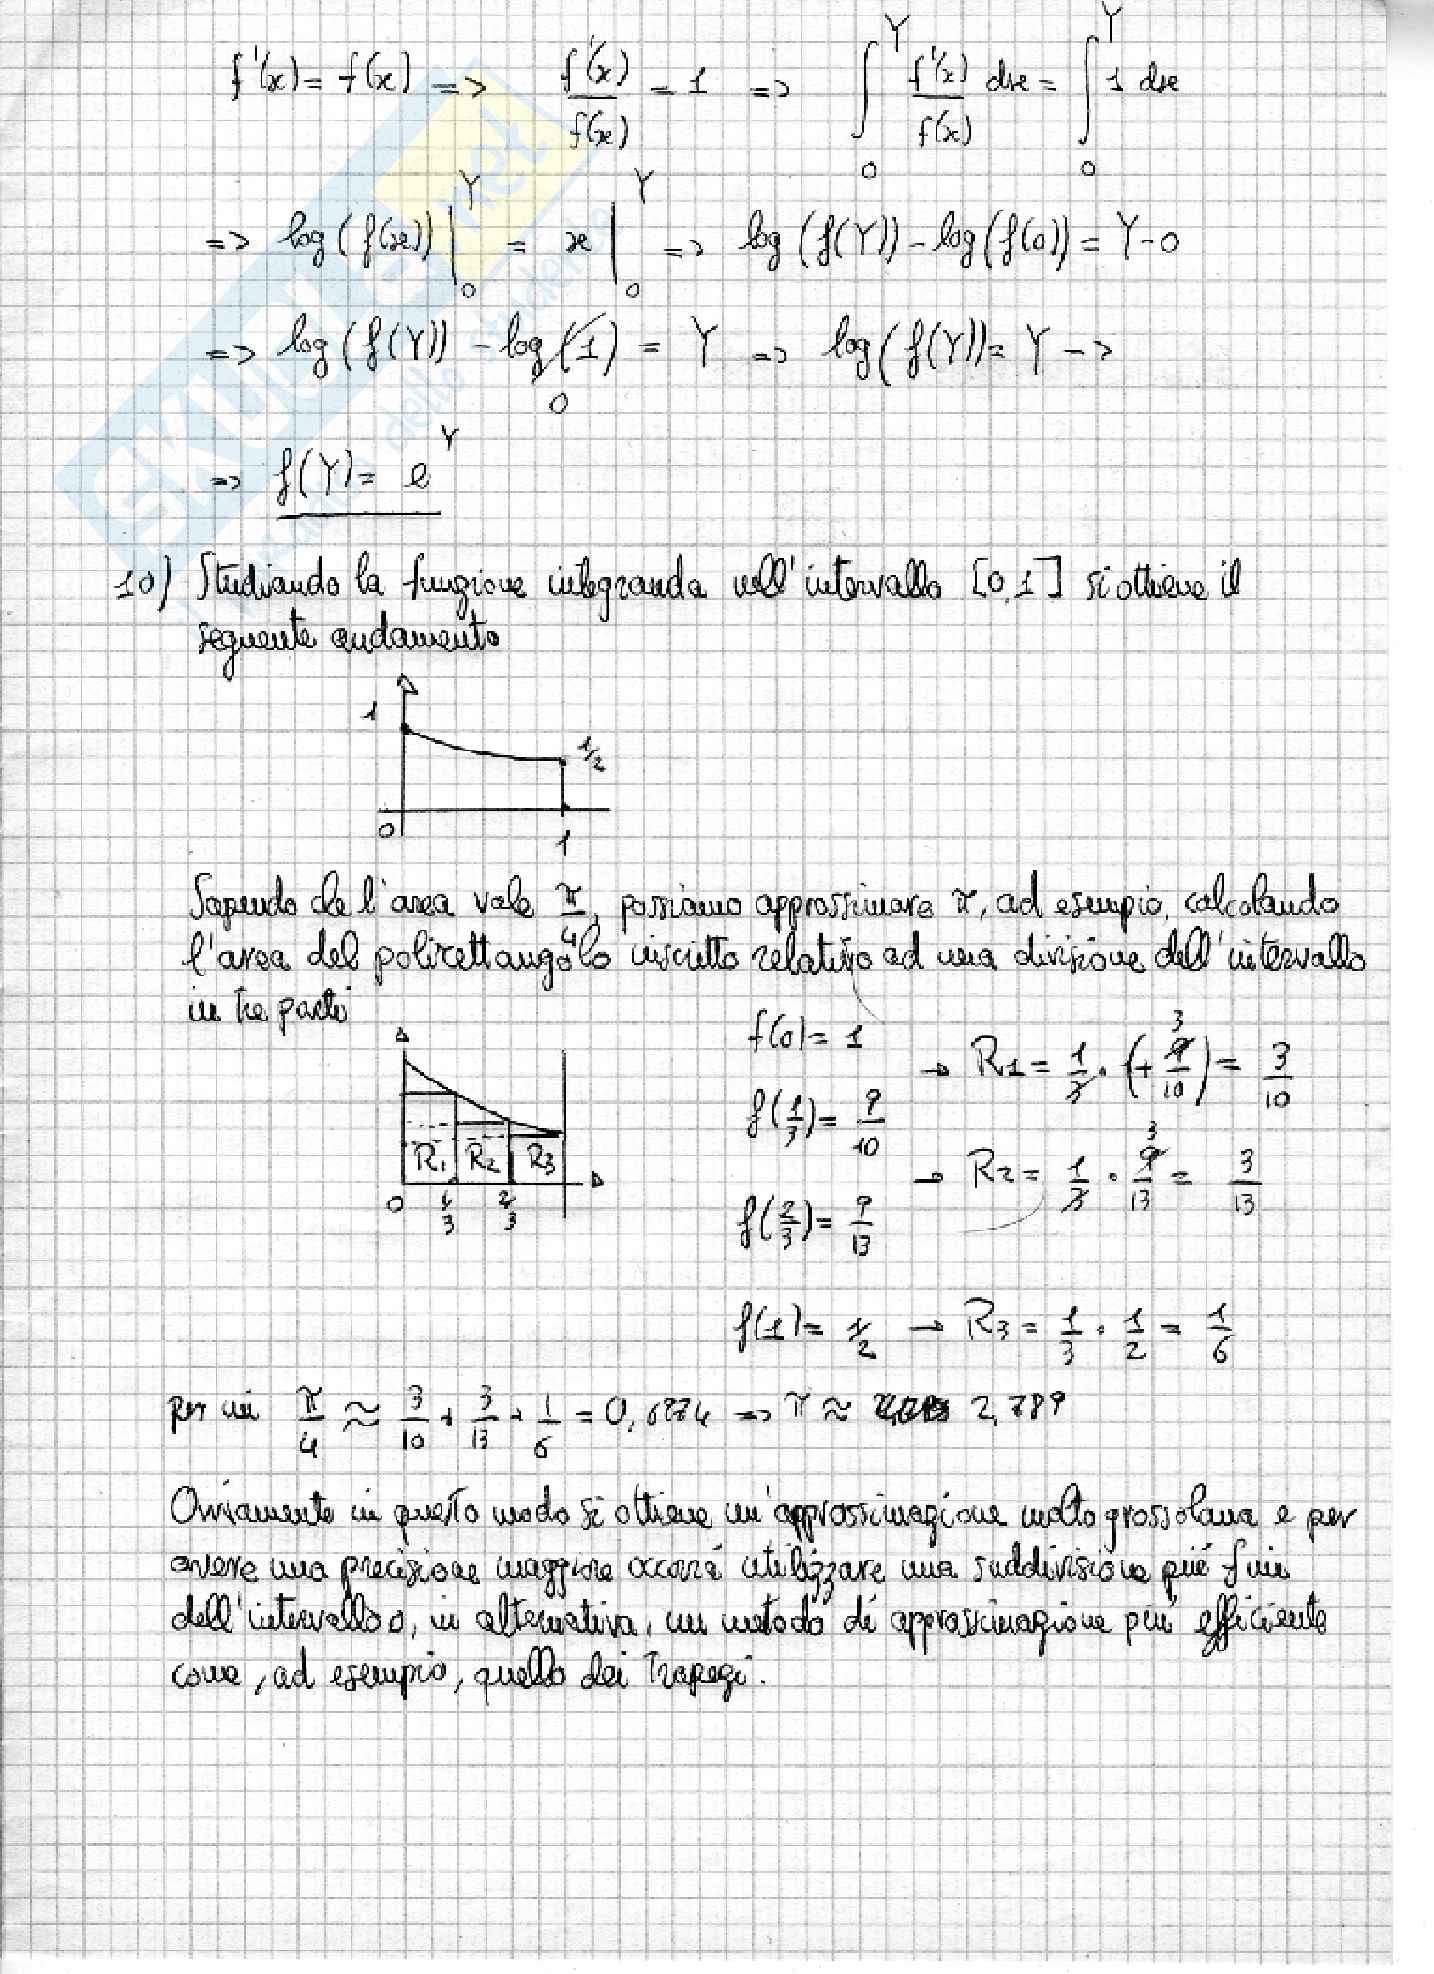 f'(x) = f(x) => f'(x)/f(x) = 1 => ∫₀^Y f'(x)/f(x) dx = ∫₀^Y 1 dx
=> log(f(x)) |₀^Y = x |₀^Y => log(f(Y)) - log(f(0)) = Y - 0
=> log(f(Y)) - log(1) = Y => log(f(Y)) = Y ->
0
=> f(Y) = e^Y
SKUOLA.net
10) Studiando la funzione integranda nell'intervallo [0,1] si ottiene il
seguente andamento
1
1/2
0
1
Sapendo che l'area vale π/4, possiamo approssimare π, ad esempio, calcolando
l'area del polirettangolo inscritto relativo ad una divisione dell'intervallo
in tre parti
f(0) = 1
-> R1 = 1/3 · (+ 9/10) = 3/10
3
f(1/3) = 9/10
R1 R2 R3
-> R2 = 1/3 · 9/13 = 3/13
3
0 1/3 2/3
f(2/3) = 9/13
f(1) = 1/2 -> R3 = 1/3 · 1/2 = 1/6
per cui π/4 ≈ 3/10 + 3/13 + 1/6 = 0,6974 => π ≈ 2,789
Ovviamente in questo modo si ottiene un'approssimazione molto grossolana e per
avere una precisione maggiore occorre utilizzare una suddivisione più fine
dell'intervallo o, in alternativa, un metodo di approssimazione più efficiente
come, ad esempio, quello dei trapezi.